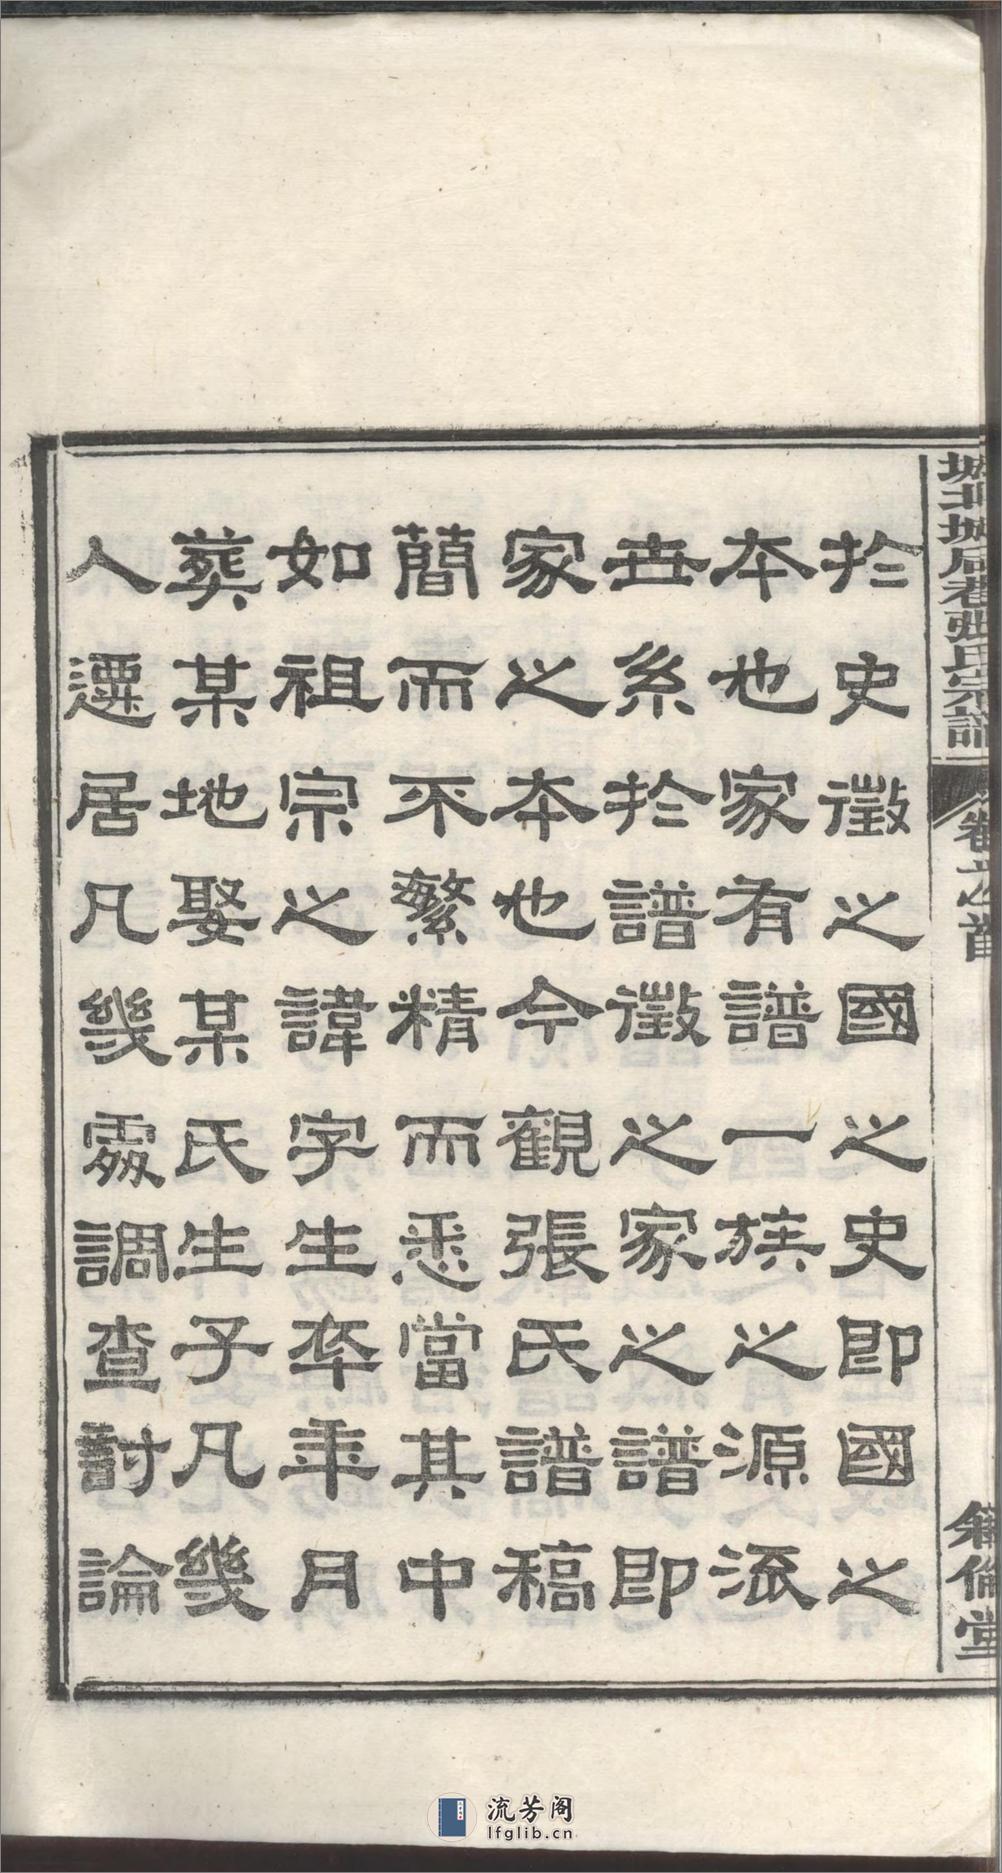 於史徵之國之史即國之
本也家有譜一族之源派
世系於譜徵之家之譜即
家之本也今觀張氏譜稿
簡而不繁精而悉當其中
如祖宗之諱字生卒年月
葬某地娶某氏生子凡幾
人遷居凡幾處調查討論
城北城后巷張氏宗譜
卷之首
倫堂
流芳阁
lfglib.cn